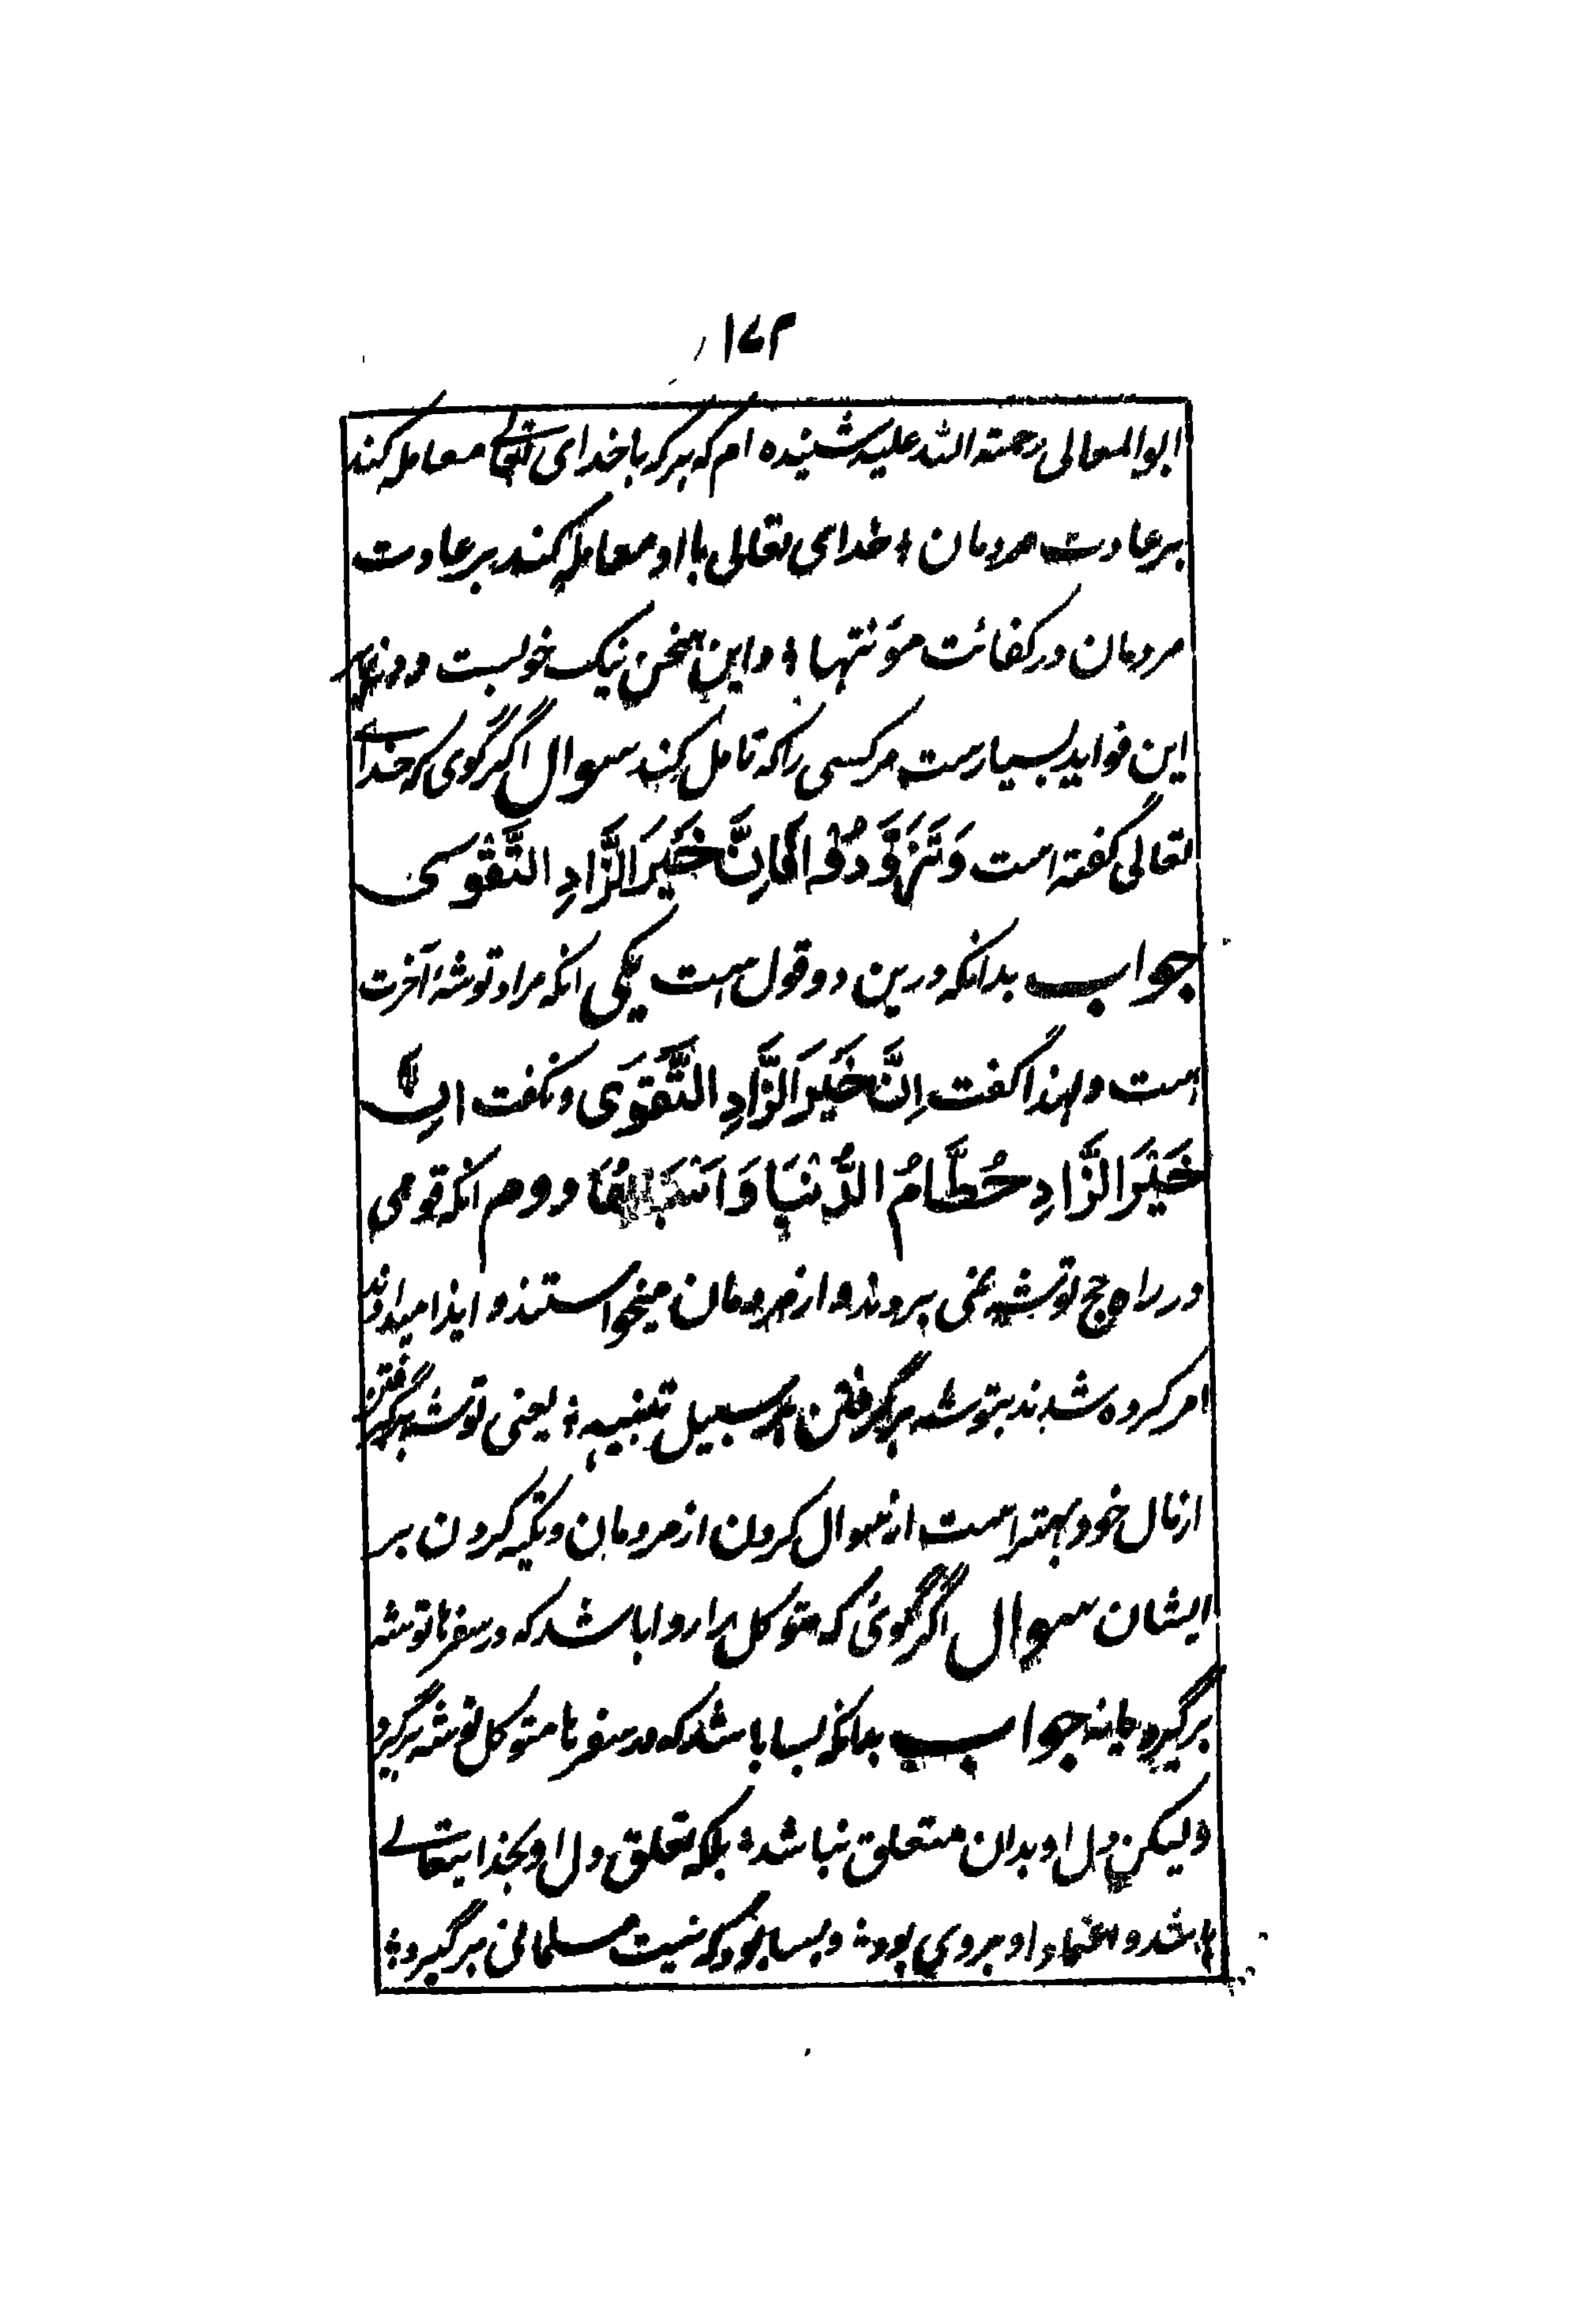 ۱۷۲
ابوالمعالی رحمته الله علیه شنیده ام که هرکه با خدای تعالے معامله کند
بر عادت مردمان ؛ خدای تعالی با او معامله کند بر عادت
مردمان در کفائت مؤنتها ؛ و این سخن نیک خوبست و در زیر
این فواید بسیارست مرکسی را که تامل کند سوال اگر گوی که خداے
تعالی گفته است وَتَزَوَّدُوْا فَاِنَّ خَیْرَ الزَّادِ التَّقْوٰی
جواب بدانکه درین دو قول است یکی انکه مراد توشهٔ آخرت
است و لهذا گفت اِنَّ خَیْرَ الزَّادِ التَّقْوٰی و نگفت اِنَّ
خَیْرَ الزَّادِ حُطَّامُ الدُّنْیَا وَ دوم انکه قومی
در راه حج توشه نمی بروند و از مردمان میخواستند و ایذا میدادند
امر کرده شدند بتوشه برگرفتن بر سبیل تنبیه ؛ یعنی توشه برگرفتن
از مال خود بهتر است از سوال کردن از مردمان و تکیه کردن بر
ایشان سوال اگر گوئی که متوکل را روا باشد که در سفرها توشه
برگیرد یا نه جواب بدانکه بسا باشد که در سفرها متوکل توشه برگیرد
ولیکن دل او بدان متعلق نباشد ؛ بلکه تعلق دل او بخدایتعالے
باشد و اعتماد او بروی بود ؛ و بسا بود که نیت مسلمانی برگیرد ؛